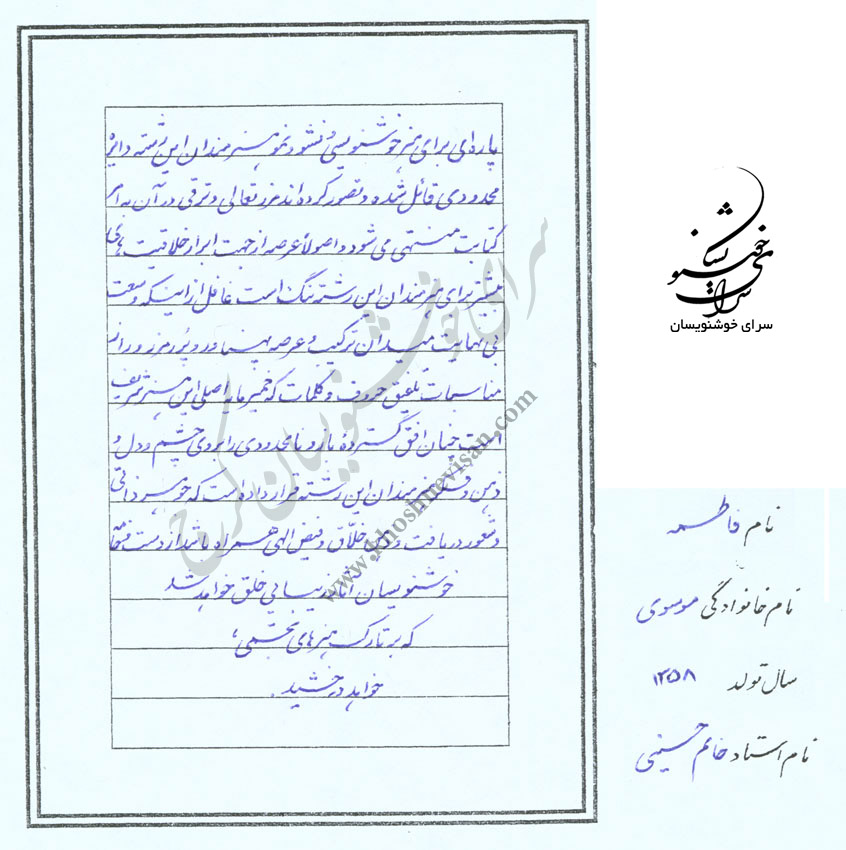 پاره‌ای برای هنر خوشنویسی و نشو و نمو هنرمندان این رشته دایره
محدودی قائل شده و تصور کرده‌اند مرز تعالی و ترقی در آن به امر
کتابت منتهی می‌شود و اصولاً عرصه از جهت ابراز خلاقیت‌های
بیشتر برای هنرمندان این رشته تنگ است غافل از اینکه وسعت
بی نهایت میدان ترکیب و عرصه پهناور و پُر رمز و راز
مناسبات تلفیق حروف و کلمات که خمیرمایه اصلی این هنر شریف
است چنان افق گسترده باز و نامحدودی را بروی چشم و دل و
ذهن و قلم هنرمندان این رشته قرار داده است که جوهر ذاتی
و شعور دریافت و ذهن خلّاق و فیض الهی همراه باشد از دست
خوشنویسان آثار زیبایی خلق خواهد شد
که بر تارک هنرهای تجسّمی،
خواهد درخشید.
سرای خوشنویسان کرج
www.khoshnevisan.com
سرای خوشنویسان
سرای خوشنویسان
نام فاطمه
نام خانوادگی موسوی
سال تولد ۱۳۵۸
نام استاد خانم حسینی